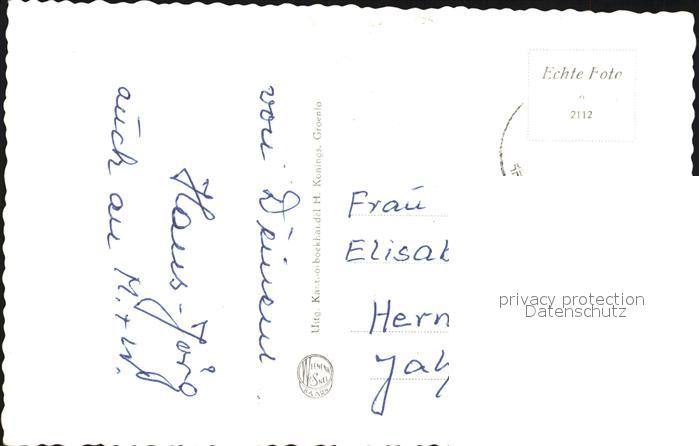 von Deinem
Hans-Jörg
auch an M. + W.
Uitg. Kantoorboekhandel H. Konings, Groenlo
Echte Foto
2112
Frau
Elisab
Hern
Jah
privacy protection
Datenschutz